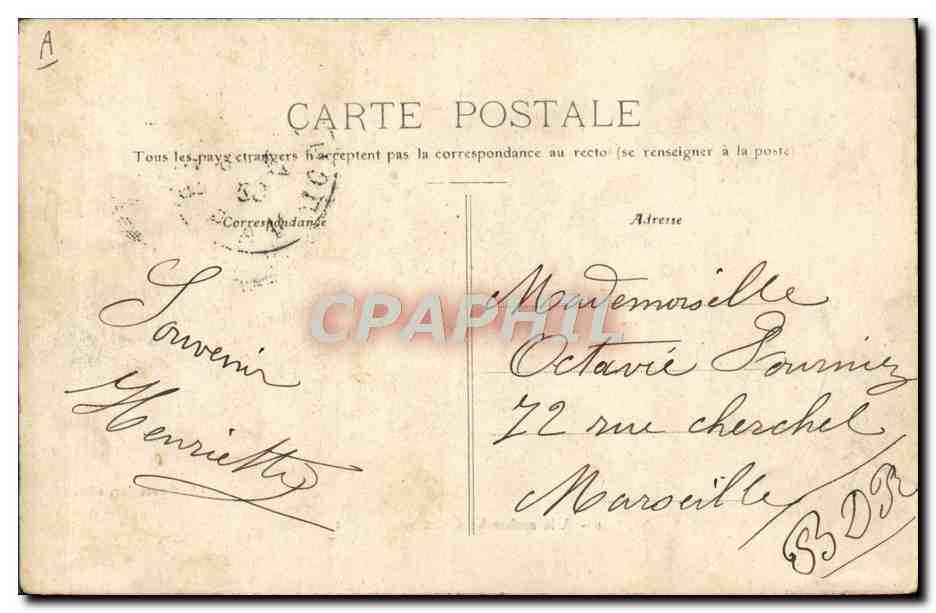 A
CARTE POSTALE
Tous les pays etrangers n'acceptent pas la correspondance au recto (se renseigner à la poste)
Correspondance
Adresse
Souvenir
Henriette
Mademoiselle
Octavie
72 rue cherchel
Marseille
BDR
CPAPHIL